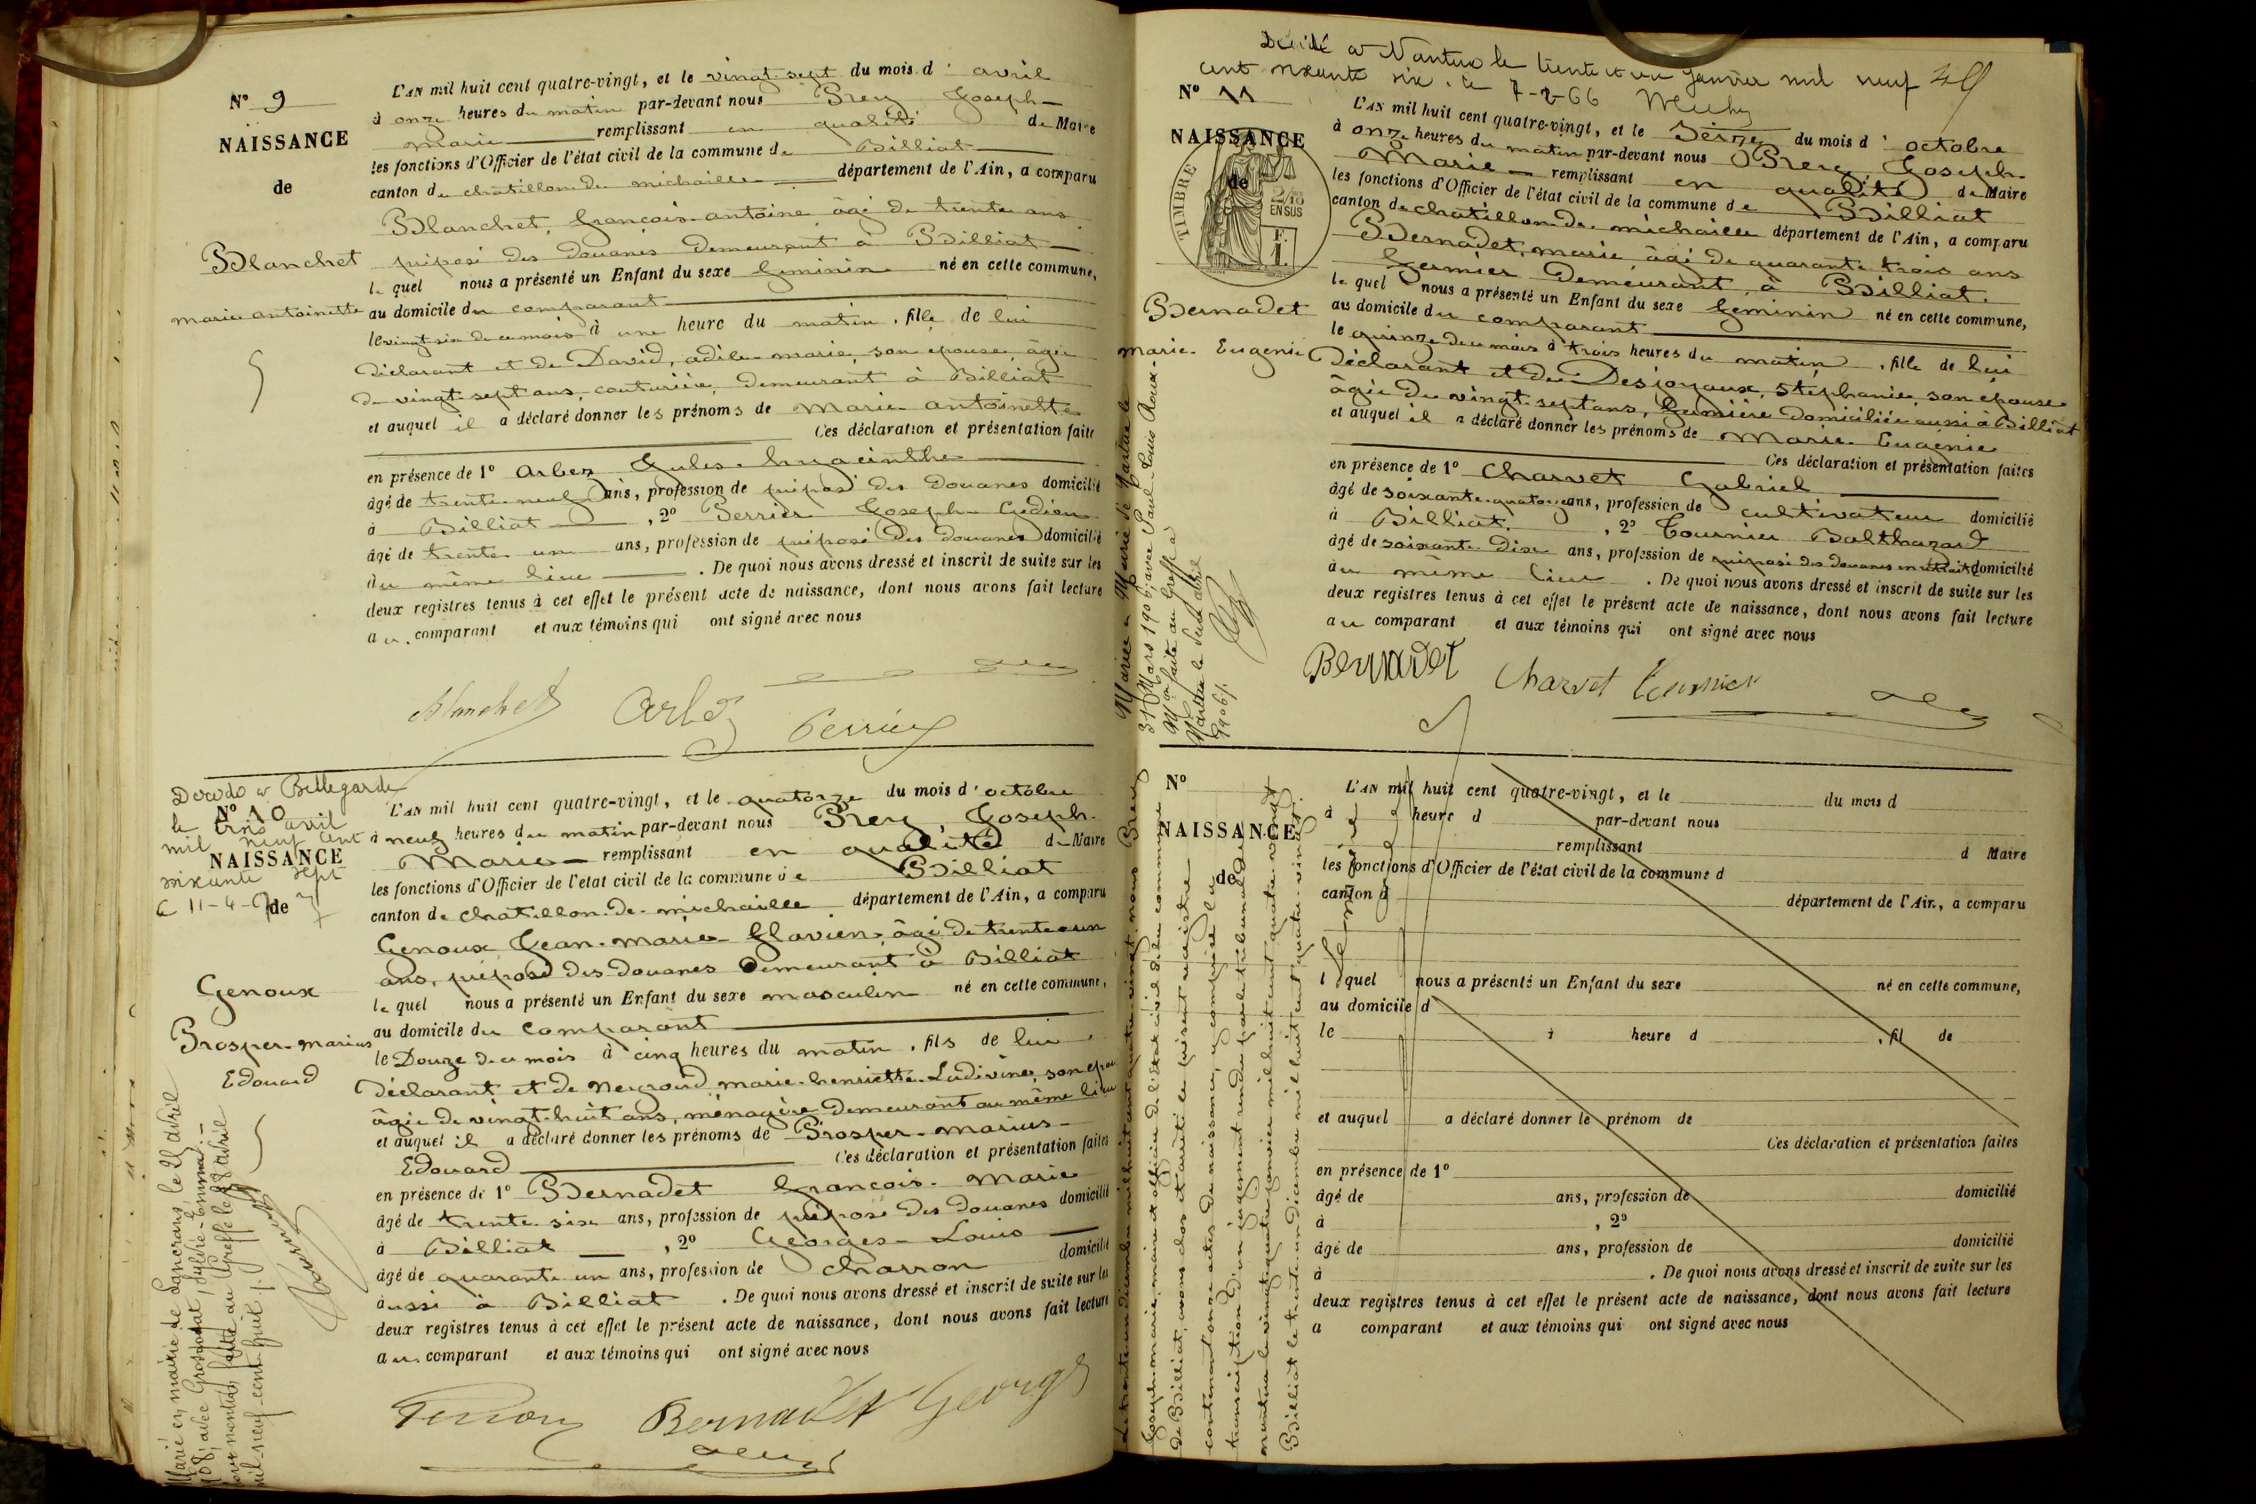 N° 9
NAISSANCE
de
Blanchet
marie antoinette
L'AN mil huit cent quatre-vingt, et le vingt-sept du mois d'avril
à onze heures du matin par-devant nous Prery Joseph-
marie remplissant en qualité de Maire
les fonctions d'Officier de l'état civil de la commune de Billiat
canton de châtillon de michaille département de l'Ain, a comparu
Blanchet, françois antoine âgé de trente ans
préposé des douanes demeurant à Billiat
le quel nous a présenté un Enfant du sexe féminin né en cette commune,
au domicile du comparant
le vingt-six de ce mois à une heure du matin, fille de lui
déclarant et de David, adile marie, son épouse, âgée
de vingt-sept ans, couturière, demeurant à Billiat
et auquel il a déclaré donner les prénoms de marie antoinette
Ces déclaration et présentation faites
en présence de 1° Arbez Jules hyacinthe
âgé de trente-neuf ans, profession de préposé des douanes domicilié
à Billiat, 2° Perrier Joseph Gédéon
âgé de trente un ans, profession de préposé des douanes domicilié
au même lieu. De quoi nous avons dressé et inscrit de suite sur les
deux registres tenus à cet effet le présent acte de naissance, dont nous avons fait lecture
au comparant et aux témoins qui ont signé avec nous
Blanchet Arbez Perrier
Décédé à Bellegarde
le trois avril
mil neuf cent
soixante sept
le 11-4-67
N° 10
NAISSANCE
de
Genoux
Prosper-marius
Edouard
L'AN mil huit cent quatre-vingt, et le quatorze du mois d'octobre
à neuf heures du matin par-devant nous Prery, Joseph-
Marie remplissant en qualité de Maire
les fonctions d'Officier de l'état civil de la commune de Billiat
canton de chatillon-de-michaille département de l'Ain, a comparu
Genoux Jean-marie-flavien, âgé de trente-un
ans, préposé des douanes demeurant à Billiat
le quel nous a présenté un Enfant du sexe masculin né en cette commune,
au domicile du comparant
le Douze de ce mois à cinq heures du matin, fils de lui
déclarant et de Neyroud marie-henriette-Ludivine, son épouse
âgée de vingt-huit ans, ménagère demeurant au même lieu
et auquel il a déclaré donner les prénoms de Prosper-marius-
Edouard Ces déclaration et présentation faites
en présence de 1° Bernadet françois-marie
âgé de trente-six ans, profession de préposé des douanes domicilié
à Billiat, 2° Georges-Louis
âgé de quarante un ans, profession de charron domicilié
aussi à Billiat. De quoi nous avons dressé et inscrit de suite sur les
deux registres tenus à cet effet le présent acte de naissance, dont nous avons fait lecture
au comparant et aux témoins qui ont signé avec nous
Bernadet George
Marié en mairie de Lancrans, le 25 avril
1908, avec Grosgurat, Sylvie-Emma.-
mention faite au Greffe le avril
mil-neuf-cent-huit.
Décédé à Nantua le trente et un janvier mil neuf
cent soixante six. le 7-2-66
N° 11
NAISSANCE
de
TIMBRE
2/10
EN SUS
F.
1.
Bernadet
marie-Eugenie
L'AN mil huit cent quatre-vingt, et le seize du mois d'octobre
à onze heures du matin par-devant nous Prery, Joseph
Marie remplissant en qualité de Maire
les fonctions d'Officier de l'état civil de la commune de Billiat
canton de chatillon-de-michaille département de l'Ain, a comparu
Bernadet, marie, âgé de quarante trois ans
fermier demeurant à Billiat.
le quel nous a présenté un Enfant du sexe féminin né en cette commune,
au domicile du comparant
le quinze de ce mois à trois heures du matin, fille de lui
déclarant et de Desjoyaux, stéphanie, son épouse
âgée de vingt-sept ans, fermière domiciliée aussi à Billiat
et auquel il a déclaré donner les prénoms de Marie-Eugénie
Ces déclaration et présentation faites
en présence de 1° Charvet Gabriel
âgé de soixante-quatorze ans, profession de cultivateur domicilié
à Billiat, 2° Tournier Balthazard
âgé de soixante-dix ans, profession de préposé des douanes en retraite domicilié
au même lieu. De quoi nous avons dressé et inscrit de suite sur les
deux registres tenus à cet effet le présent acte de naissance, dont nous avons fait lecture
au comparant et aux témoins qui ont signé avec nous
Bernadet Charvet Tournier
Mariée à Mairie de Nantua le
31 Mars 1906, avec Paul-Louis Roux.-
Mon faite au Greffe à
Nantua le deux avril
1906.
N°
NAISSANCE
de
L'AN mil huit cent quatre-vingt, et le du mois d
à heure d par-devant nous
remplissant d Maire
les fonctions d'Officier de l'état civil de la commune d
canton d département de l'Ain, a comparu
l quel nous a présenté un Enfant du sexe né en cette commune,
au domicile d
le à heure d, fil de
et auquel a déclaré donner le prénom de
Ces déclaration et présentation faites
en présence de 1°
âgé de ans, profession de domicilié
à, 2°
âgé de ans, profession de domicilié
à. De quoi nous avons dressé et inscrit de suite sur les
deux registres tenus à cet effet le présent acte de naissance, dont nous avons fait lecture
a comparant et aux témoins qui ont signé avec nous
Le trente-un décembre mil huit cent quatre-vingt, nous Prery
Joseph-marie, maire et officier de l'état civil de la commune
de Billiat, avons clos et arrêté le présent registre
contenant onze actes de naissance, y compris la
transcription d'un jugement rendu par le tribunal de
nantua le vingt-quatre janvier mil huit cent quatre-vingt
Billiat le trente-un décembre mil huit cent quatre-vingt.